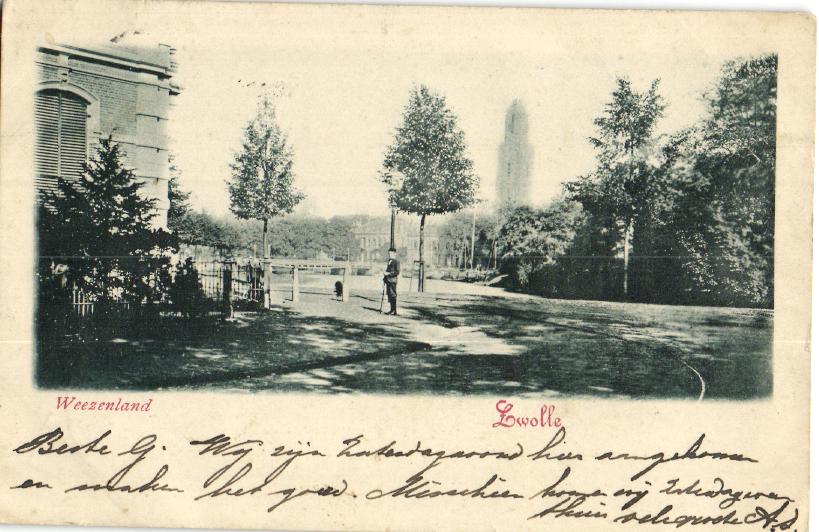 Weezenland
Zwolle
Beste G. Wij zijn Zaterdagavond hier aangekomen
en maken het goed. Misschien komen wij Zaterdag
thuis